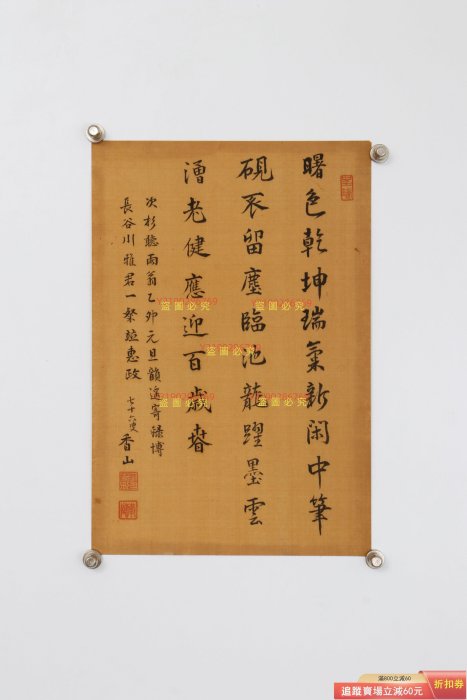 曙色乾坤瑞氣新閑中筆
硯不留塵臨池龍躍墨雲
老健應迎百歲春
次杉聽雨翁乙卯元旦韻遙寄錄博
長谷川雅君一粲並惠政
七十六叟香山
盜圖必究
盜圖必究
盜圖必究
盜圖必究
盜圖必究
盜圖必究
滿800立減60
追蹤賣場立減60元
折扣券